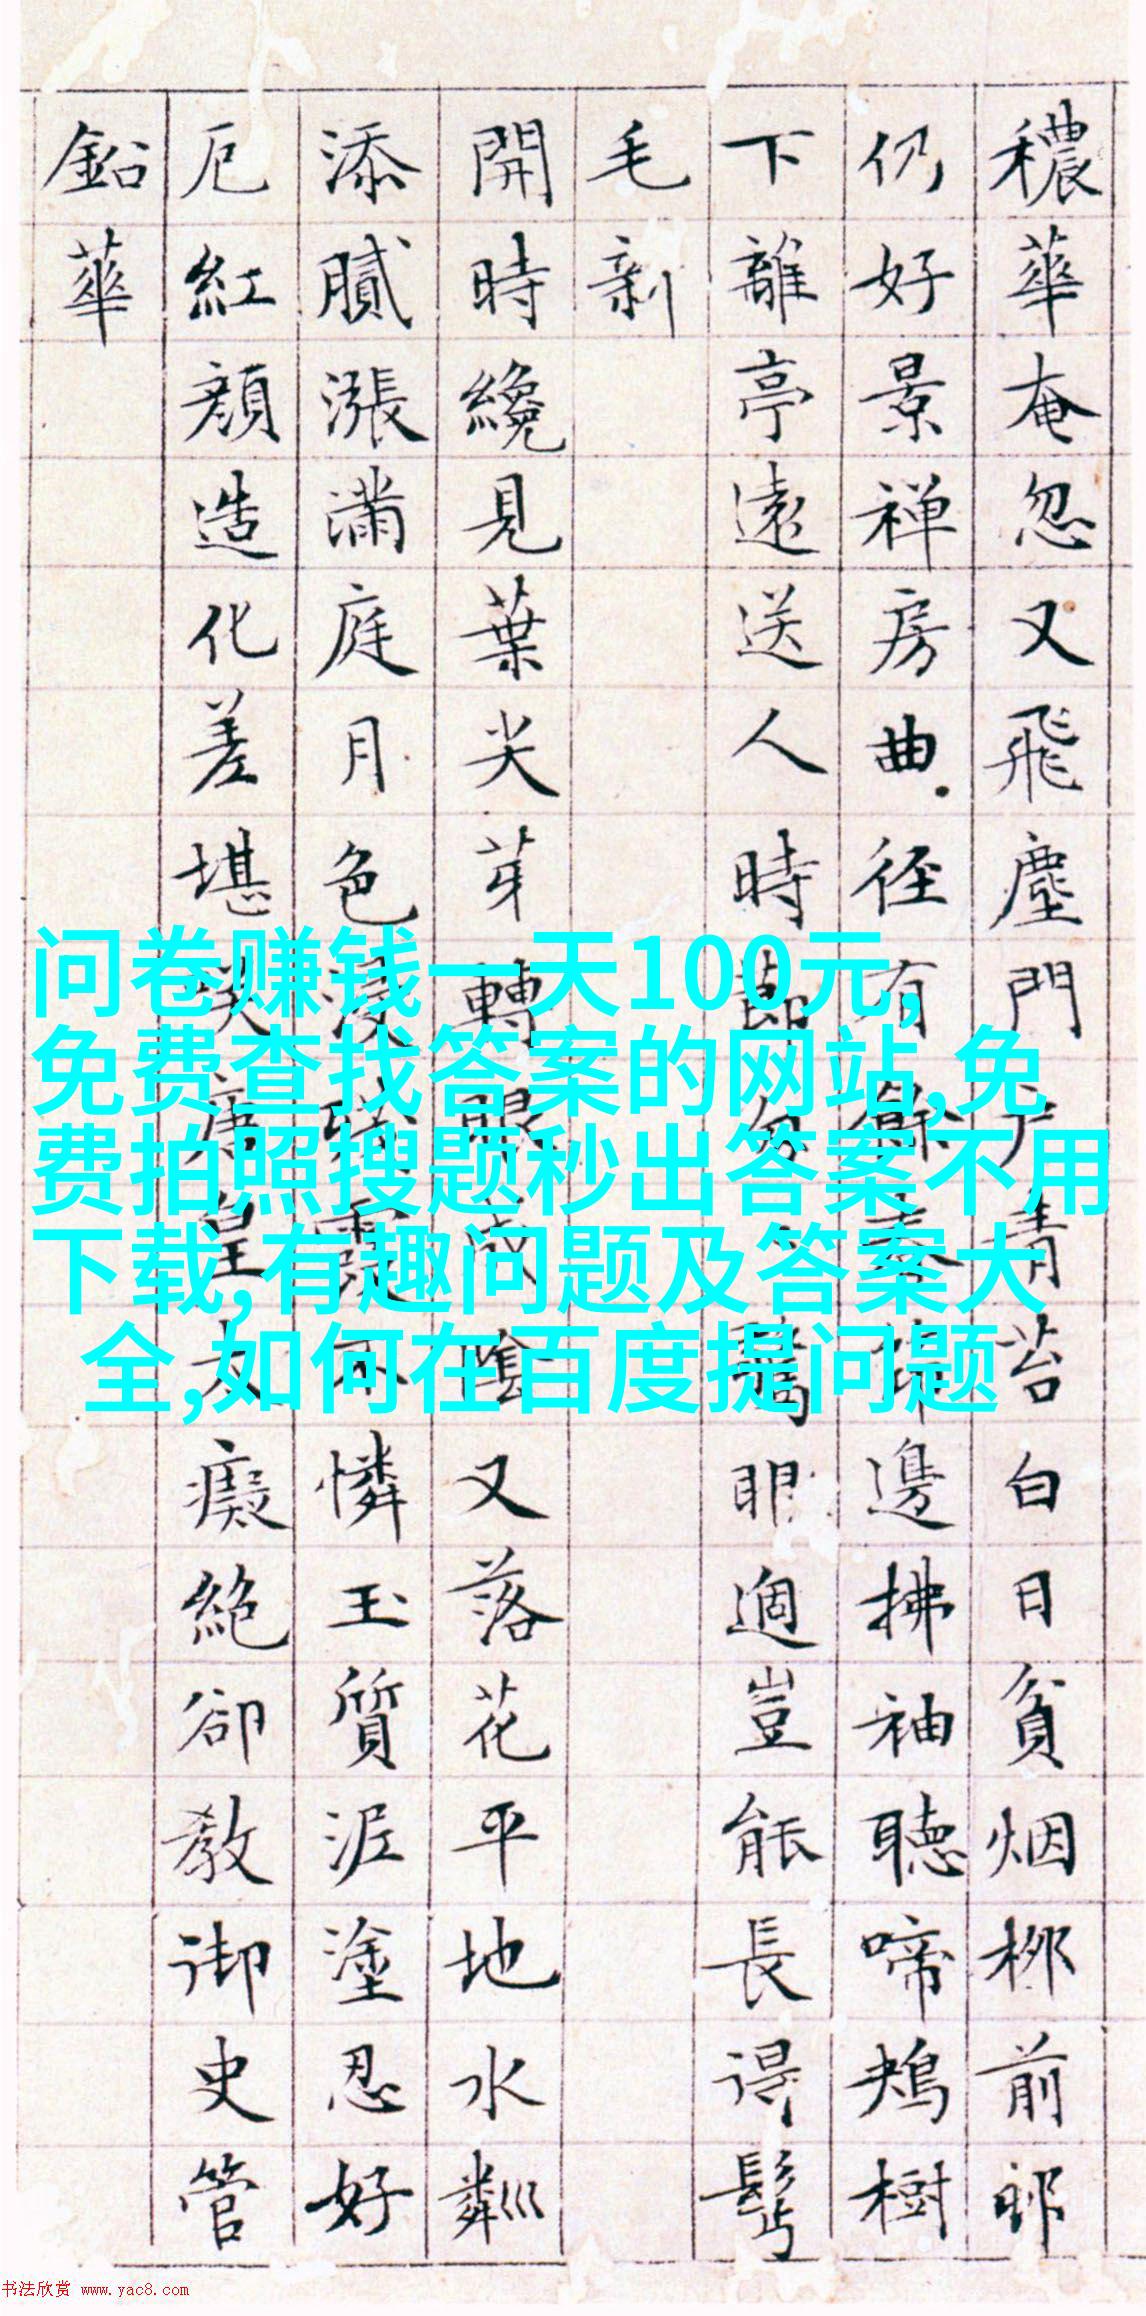 穠華奄忽又飛塵門户青苔白日貧烟栁前邨
仍好景禅房曲径有餘春邊拂袖聽啼鴂樹
下離亭遠送人時節匆驚眼過豈能長得鬢
毛新
開時纔見葉尖芽轉眼成陰又落花平地水粼
添膩漲滿庭月色浸霞不憐玉質泥塗忍好
厄紅顔造化差堪笑唐皇太癡絕卻教御史管
鉛華
问卷赚钱一天100元,
免费查找答案的网站,免
费拍照搜题秒出答案不用
下载,有趣问题及答案大
全,如何在百度提问题
书法欣赏 www.yac8.com